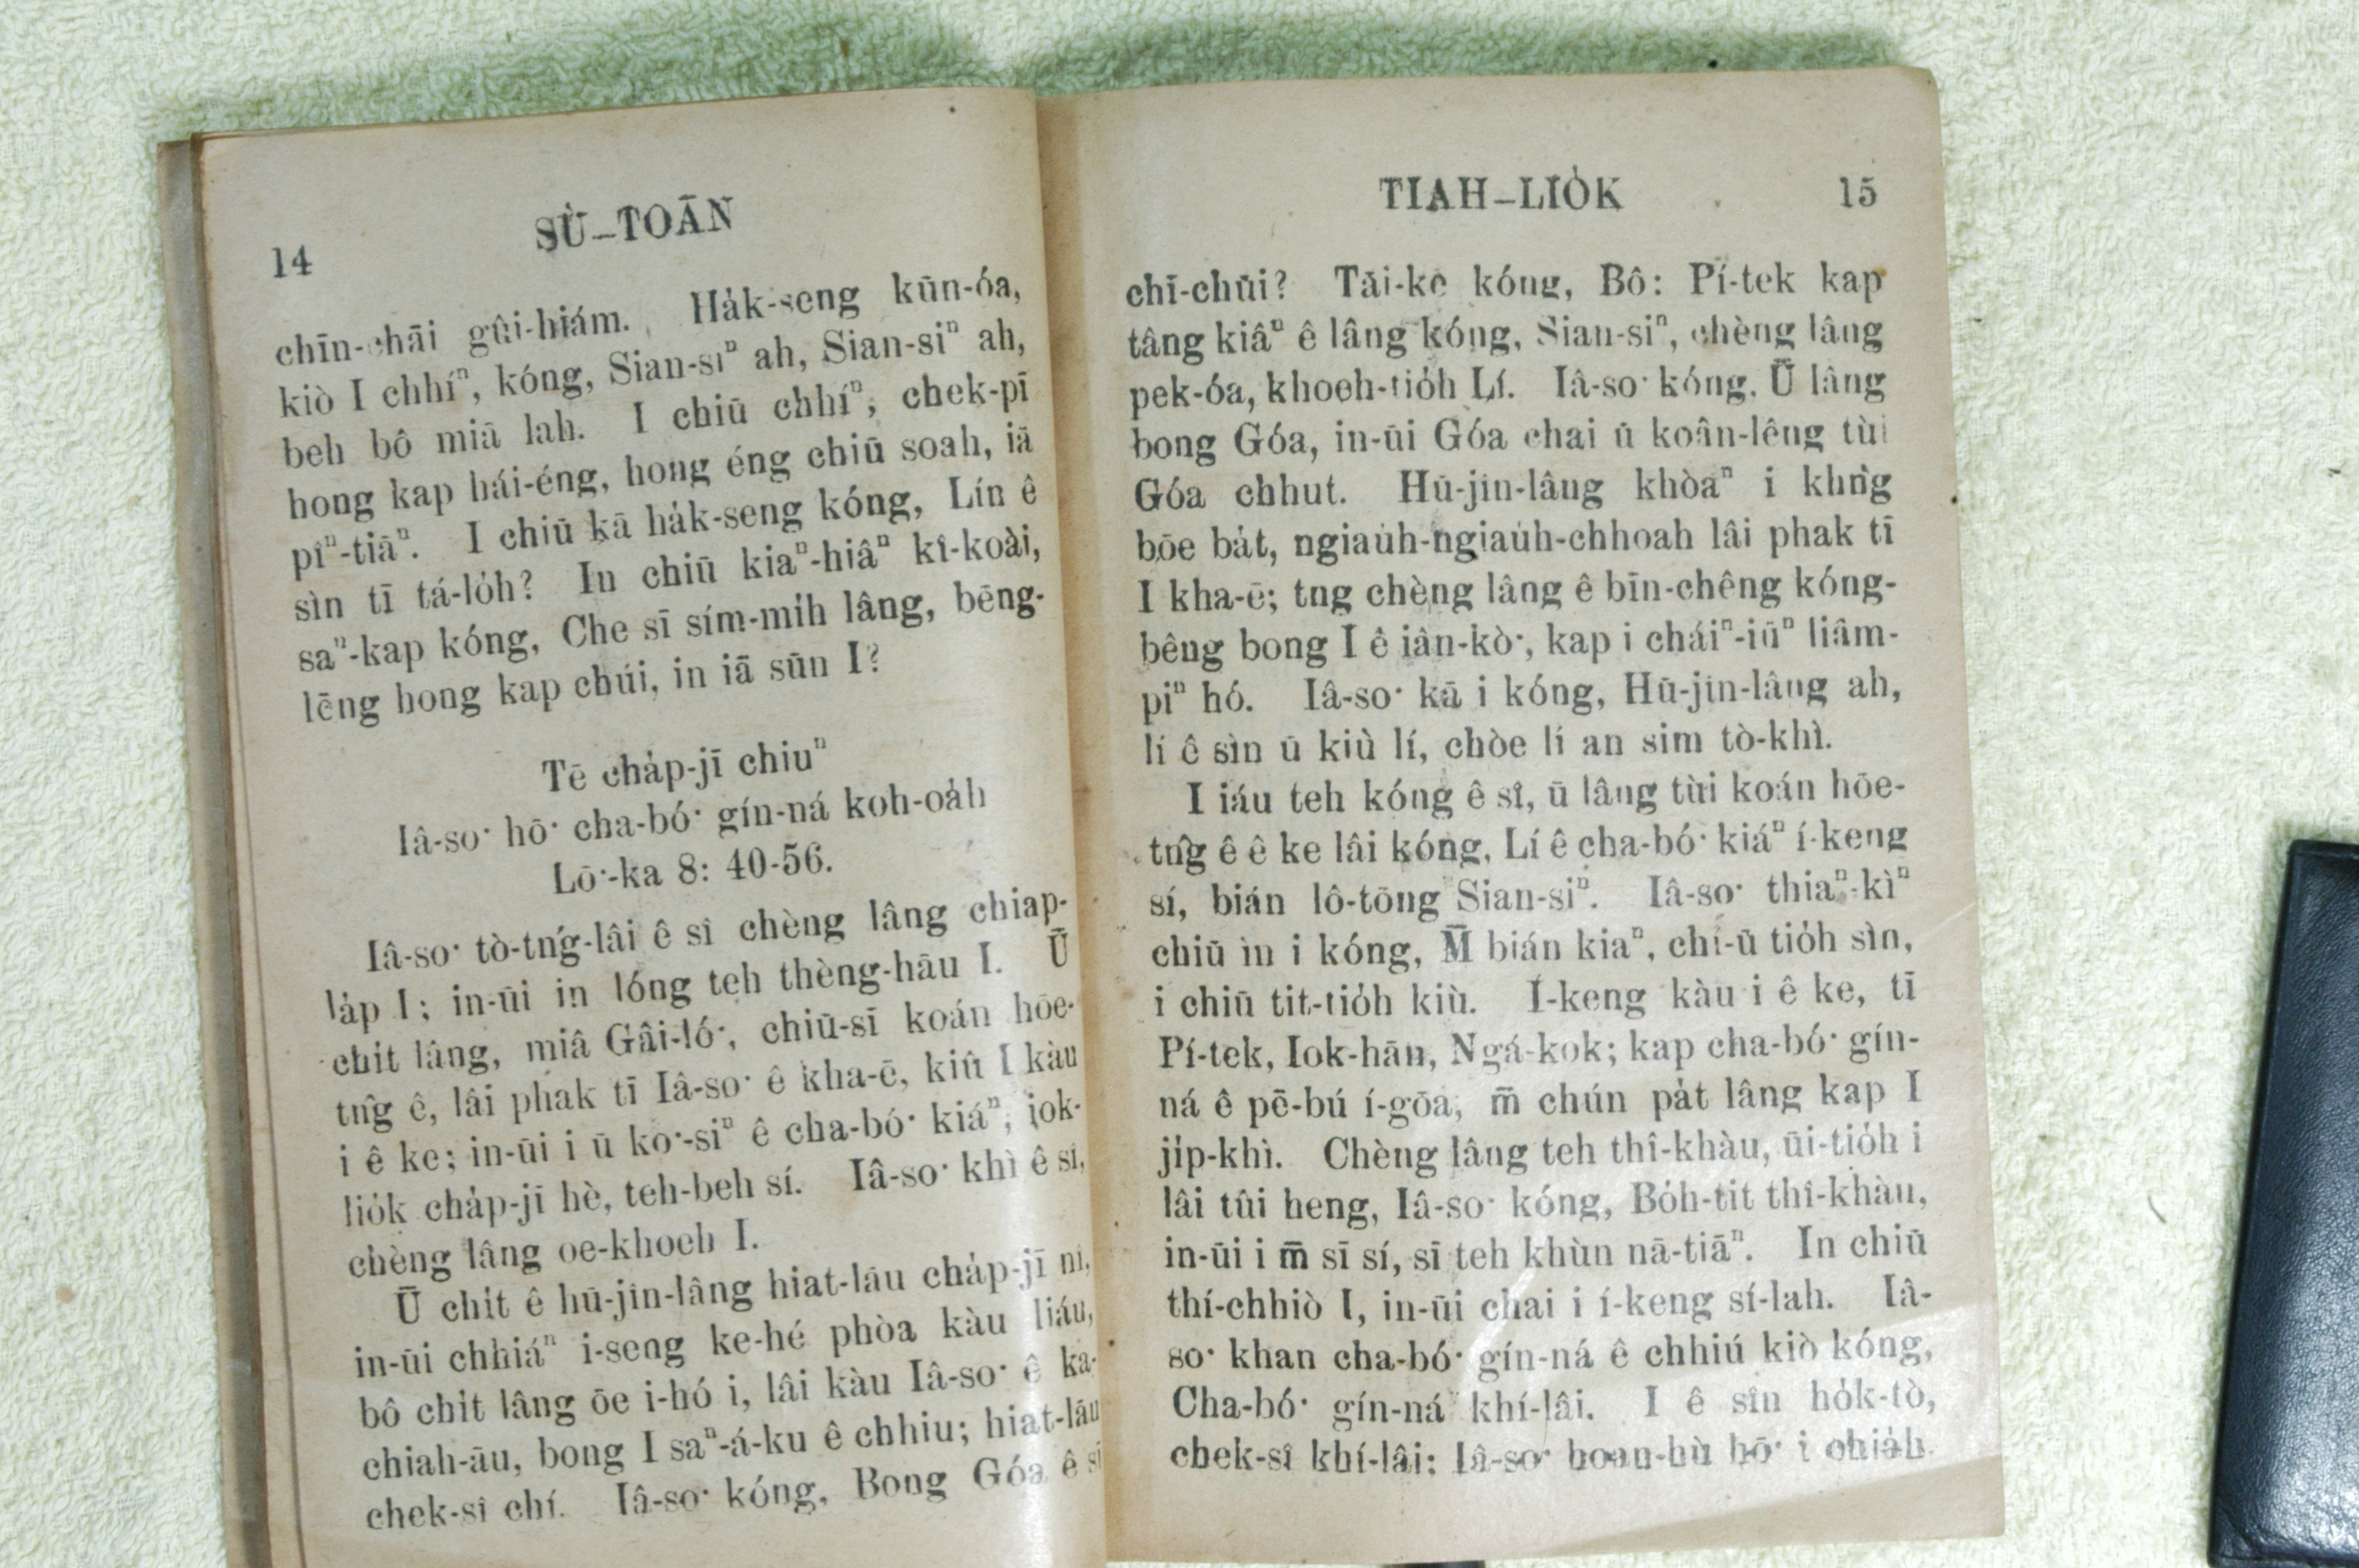 14
SÙ–TOĀN
chīn-chāi gûi-hiám. Ha̍k-seng kūn-óa,
kiò I chhíⁿ, kóng, Sian-siⁿ ah, Sian-siⁿ ah,
beh bô miā lah. I chiū chhíⁿ, chek-pī
hong kap hái-éng, hong éng chiū soah, iā
pîⁿ-tiāⁿ. I chiū kā ha̍k-seng kóng, Lín ê
sìn tī tá-lo̍h? In chiū kiaⁿ-hiâⁿ kî-koài,
saⁿ-kap kóng, Che sī sím-mi̍h lâng, bēng-
lēng hong kap chúi, in iā sūn I?
Tē cha̍p-jī chiuⁿ
Iâ-so͘ hō͘ cha-bó͘ gín-ná koh-oa̍h
Lō͘-ka 8: 40-56.
Iâ-so͘ tò-tńg-lâi ê sî chèng lâng chiap-
la̍p I; in-ūi in lóng teh thèng-hāu I. Ū
chit lâng, miâ Gâi-ló͘, chiū-sī koán hōe-
tn̂g ê, lâi phak tī Iâ-so͘ ê kha-ē, kiû I kàu
i ê ke; in-ūi i ū ko͘-siⁿ ê cha-bó͘ kiáⁿ, iok-
lio̍k cha̍p-jī hè, teh-beh sí. Iâ-so͘ khì ê sî,
chèng lâng oe-khoeh I.
Ū chi̍t ê hū-jîn-lâng hiat-lāu cha̍p-jī nî,
in-ūi chhiáⁿ i-seng ke-hé phòa kàu liáu,
bô chi̍t lâng ōe i-hó i, lâi kàu Iâ-so͘ ê ka-
chiah-āu, bong I saⁿ-á-ku ê chhiu; hiat-lāu
chek-sî chí. Iâ-so͘ kóng, Bong Góa ê sī
TIAH–LIO̍K 15
chī-chūi? Tāi-ke kóng, Bô: Pí-tek kap
tâng kiâⁿ ê lâng kóng, Sian-siⁿ, chèng lâng
pek-óa, khoeh-tio̍h Lí. Iâ-so͘ kóng, Ū lâng
bong Góa, in-ūi Góa chai ū koân-lêng tùi
Góa chhut. Hū-jîn-lâng khòaⁿ i khǹg
bōe ba̍t, ngiau̍h-ngiau̍h-chhoah lâi phak tī
I kha-ē; tng chèng lâng ê bīn-chêng kóng-
bêng bong I ê iân-kò͘, kap i cháiⁿ-iūⁿ liâm-
piⁿ hó. Iâ-so͘ kā i kóng, Hū-jîn-lâng ah,
lí ê sìn ū kiù lí, chòe lí an sim tò-khì.
I iáu teh kóng ê sî, ū lâng tùi koán hōe-
tn̂g ê ê ke lâi kóng, Lí ê cha-bó͘ kiáⁿ í-keng
sí, bián lô-tōng Sian-siⁿ. Iâ-so͘ thiaⁿ-kìⁿ
chiū ìn i kóng, M̄ bián kiaⁿ, chí-ū tio̍h sìn,
i chiū tit-tio̍h kiù. Í-keng kàu i ê ke, tī
Pí-tek, Iok-hān, Ngá-kok; kap cha-bó͘ gín-
ná ê pē-bú í-gōa, m̄ chún pa̍t lâng kap I
ji̍p-khì. Chèng lâng teh thî-khàu, ūi-tio̍h i
lâi tûi heng, Iâ-so͘ kóng, Bo̍h-tit thî-khàu,
in-ūi i m̄ sī sí, sī teh khùn nā-tiāⁿ. In chiū
thí-chhiò I, in-ūi chai i í-keng sí-lah. Iâ-
so͘ khan cha-bó͘ gín-ná ê chhiú kiò kóng,
Cha-bó͘ gín-ná khí-lâi. I ê sîn ho̍k-tò,
chek-sî khí-lâi; Iâ-so͘ hoan-hù hō͘ i chia̍h.